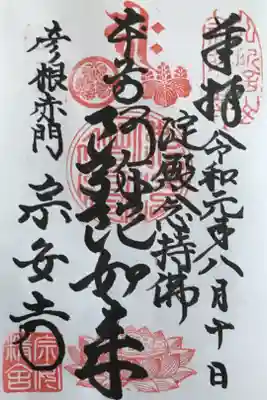 奉拝 令和元年八月十日
淀殿念持佛
本尊阿弥陀如来
彦根赤門 宗安寺